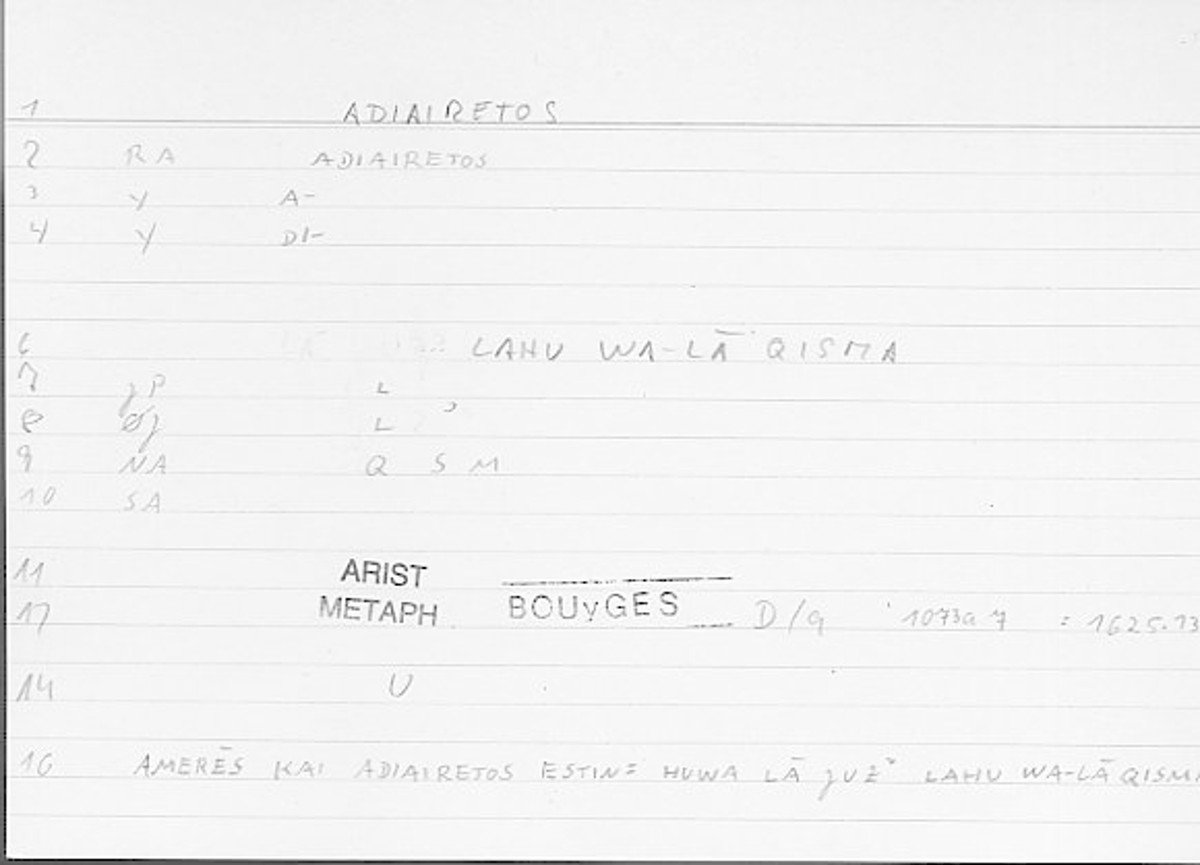 1 ADIAIRETOS
2 RA ADIAIRETOS
3 Y A-
4 Y DI-
6 LAHU WA-LĀ QISMA
7 ȷP L
8 Øȷ L ʾ
9 NA Q S M
10 SA
11 ARIST
12 METAPH BOUyGES D/a 1073a7 : 1625.13
14 U
16 AMERĒS KAI ADIAIRETOS ESTIN: HUWA LĀ LAHU WA-LĀ QISMA